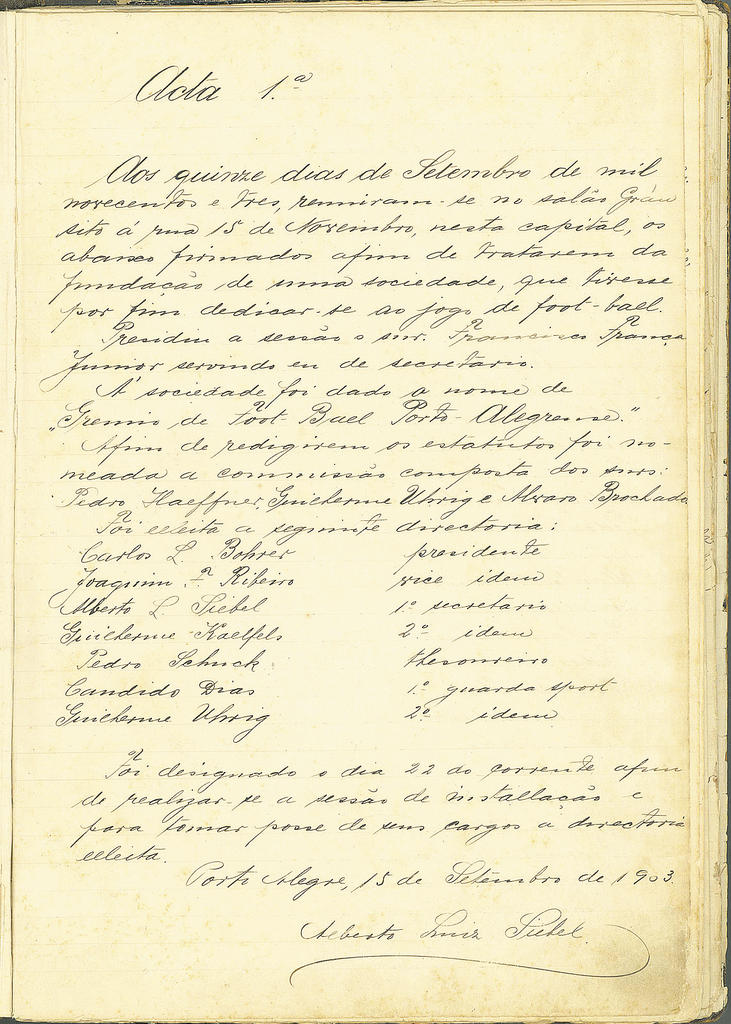 Acta 1.ª
Aos quinze dias de Setembro de mil
novecentos e tres, reuniram-se no salão Gráu
sito á rua 15 de Novembro, nesta capital, os
abaixo firmados afim de tratarem da
fundação de uma sociedade, que tivesse
por fim dedicar-se ao jogo de foot-ball.
Presidiu a sessão o snr. Francisco França
Junior servindo eu de secretario.
A' sociedade foi dado o nome de
„Gremio de Foot-Ball Porto-Alegrense."
Afim de redigirem os estatutos foi no-
meada a commissão composta dos snrs:
Pedro Haeffner, Guilherme Uhrig e Alvaro Brochado
Foi eleita a seguinte directoria:
Carlos L. Bohrer presidente
Joaquim F. Ribeiro vice idem
Alberto L. Siebel 1º secretario
Guilherme Kaelfels 2º idem
Pedro Schuck thesoureiro
Candido Dias 1º guarda sport
Guilherme Uhrig 2º idem
Foi designado o dia 22 do corrente afim
de realizar-se a sessão de installacão e
para tomar posse de seus cargos a directoria
elleita.
Porto Alegre, 15 de Setembro de 1903.
Alberto Luiz Siebel